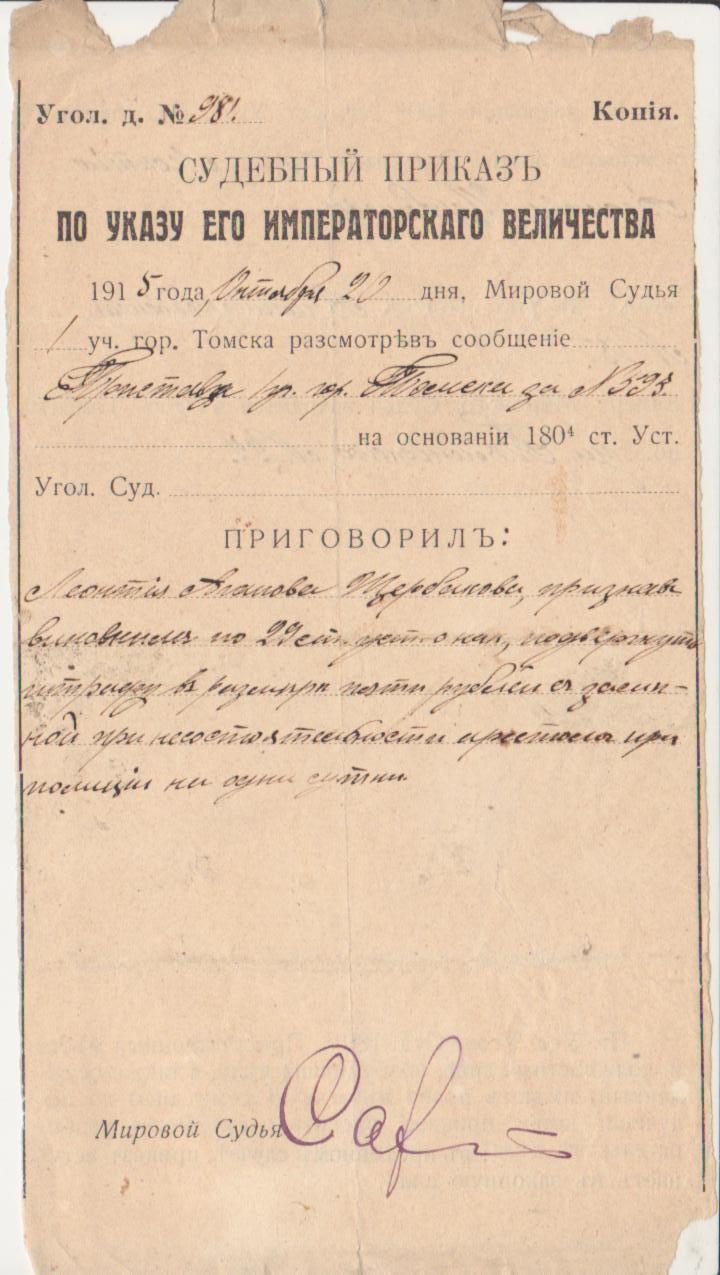 Угол. д. № 981. Копія.
СУДЕБНЫЙ ПРИКАЗЪ
ПО УКАЗУ ЕГО ИМПЕРАТОРСКАГО ВЕЛИЧЕСТВА
1915 года, Октября 20 дня, Мировой Судья
1 уч. гор. Томска разсмотрѣвъ сообщеніе
Пристава гор. Томска за №
на основаніи 180⁴ ст. Уст.
Угол. Суд.
ПРИГОВОРИЛЪ:
Леонтія Агапова Щербакова, признав
виновнымъ по 29 ст. уст. о нак., подвергнуть
штрафу въ размѣрѣ пяти рублей съ замѣ-
ной при несостоятельности арестомъ при
полиціи на одни сутки.
Мировой Судья